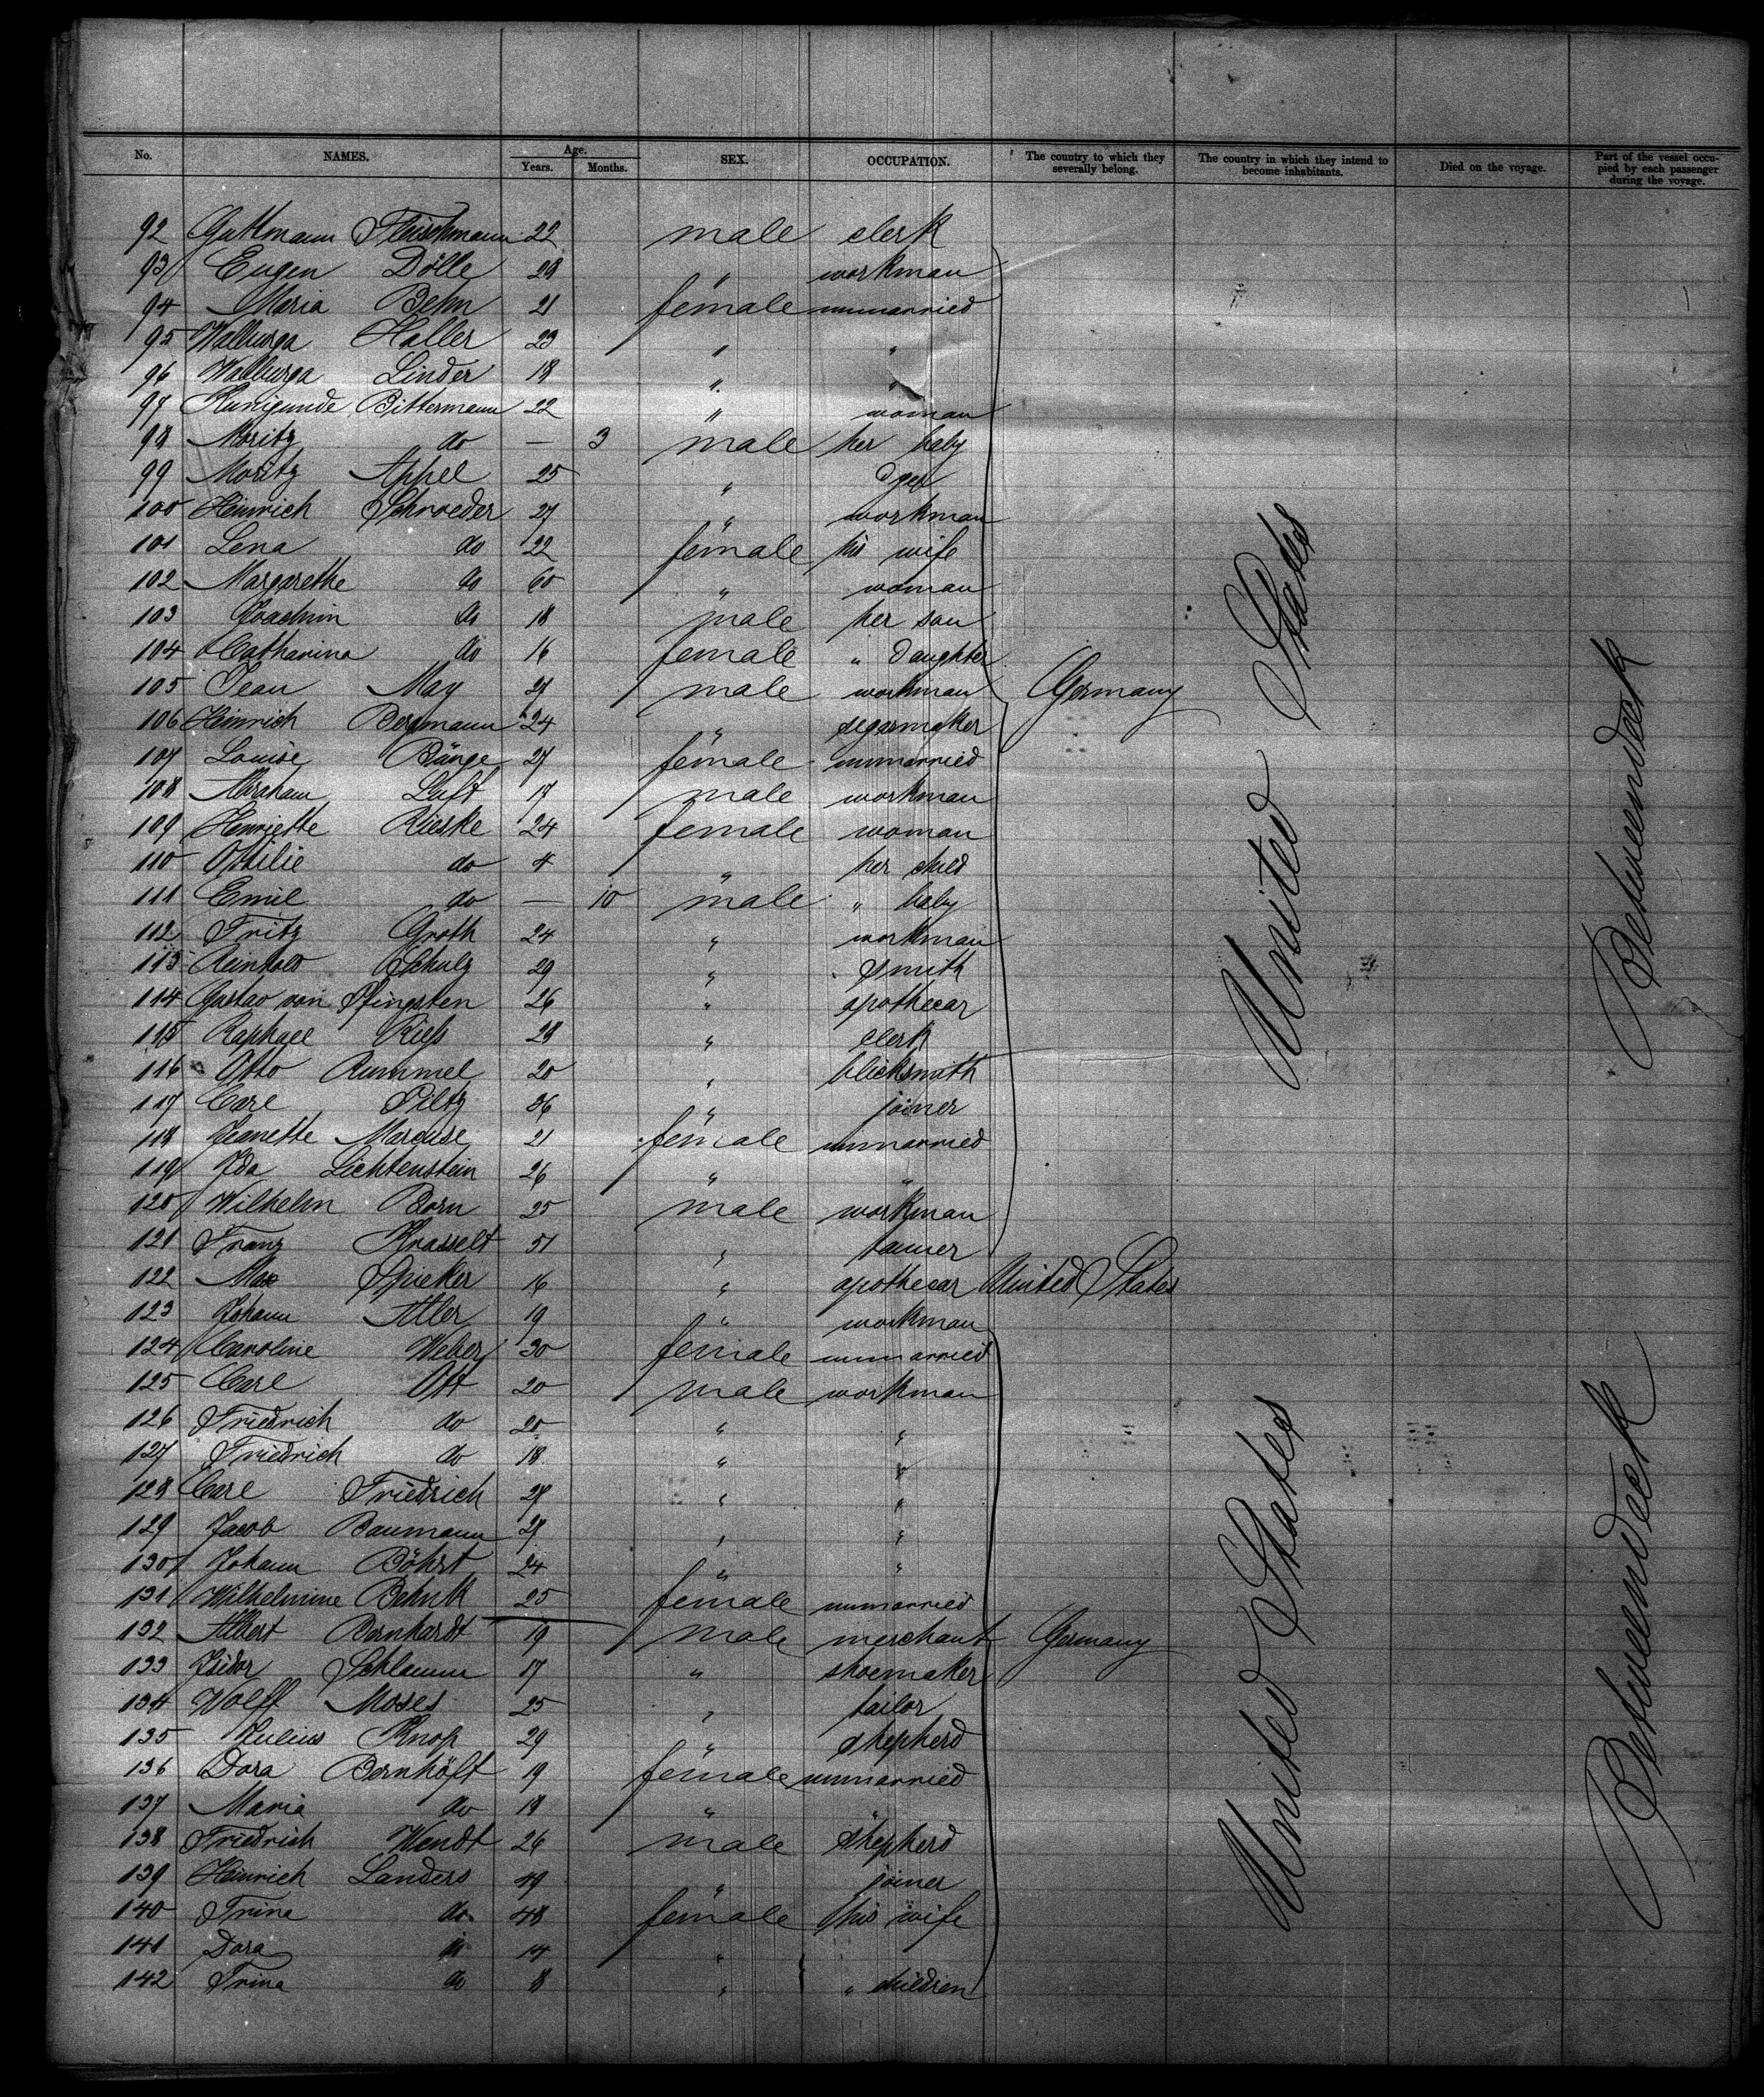 No. NAMES. Age. Years. Months. SEX. OCCUPATION. The country to which they severally belong. The country in which they intend to become inhabitants. Died on the voyage. Part of the vessel occupied by each passenger during the voyage.
92 Guttmann Fleischmann 22 male clerk
93 Eugen Dölle 28 " workman
94 Maria Behn 21 female unmarried
95 Walburga Haller 23 " "
96 Walburga Linder 18 " "
97 Kunigunde Bittermann 22 " woman
98 Moritz do — 3 male her baby
99 Moritz Appel 25 " dyer
100 Heinrich Schroeder 27 " workman
101 Lena do 22 female his wife
102 Margarethe do 60 " woman
103 Joachim do 18 male her son
104 Catharina do 16 female " daughter
105 Jean May 27 male workman Germany
106 Heinrich Bergmann 24 " segarmaker
107 Louise Bänge 27 female unmarried
108 Abraham Luft 17 male workman
109 Henriette Rieske 24 female woman
110 Ottilie do 4 " her child
111 Emil do — 10 male " baby
112 Fritz Groth 24 " workman
113 Reinhold Schulz 29 " smith
114 Gustav von Pfingsten 26 " apothecar
115 Raphael Rieß 28 " clerk
116 Otto Rummel 20 " blicksmith
117 Carl Piltz 36 " joiner
118 Jeanette Marcuse 21 female unmarried
119 Ida Lichtenstein 26 " "
120 Wilhelm Born 25 male workman
121 Franz Krasselt 51 " tanner
United States
Betweendeck
122 Max Spieker 16 " apothecar United States
123 Johann Atler 19 " workman
124 Caroline Weber 30 female unmarried
125 Carl Ott 20 male workman
126 Friedrich do 20 " "
127 Friedrich do 18 " "
128 Carl Friedrich 27 " "
129 Jacob Baumann 27 " "
130 Johann Böhrt 24 " "
131 Wilhelmine Behnk 25 female unmarried
132 Albert Bernhardt 19 male merchant Germany
133 Isidor Schlamm 17 " shoemaker
134 Wolff Moses 25 " tailor
135 Julius Knop 29 " shepherd
136 Dora Bernhöft 19 female unmarried
137 Maria do 18 " "
138 Friedrich Wendt 26 male shepherd
139 Heinrich Landers 49 " joiner
140 Trina do 48 female his wife
141 Dora do 14 "
142 Trina do 8 " " children
United States
Betweendeck